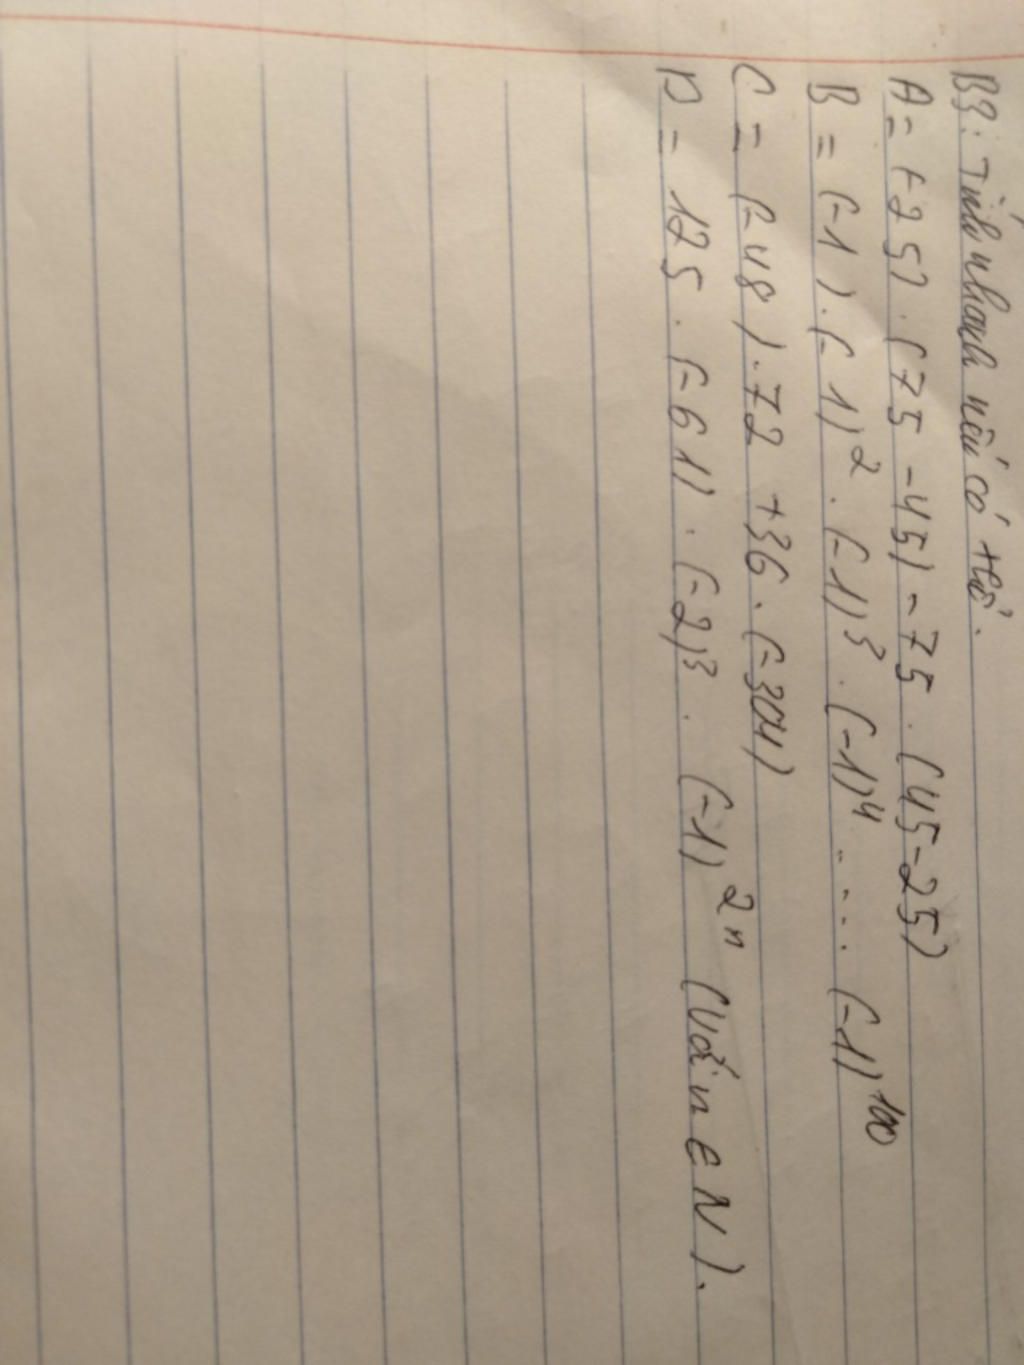 B3: Tính nhanh nếu có thể.
A = (-25) . (75 - 45) - 75 . (45 - 25)
B = (-1) . (-1)² . (-1)³ . (-1)⁴ .... (-1)¹⁰⁰
C = (-48) . 72 + 36 . (-304)
D = 125 . (-61) . (-2)³ . (-1)²ⁿ (với n ∈ N).